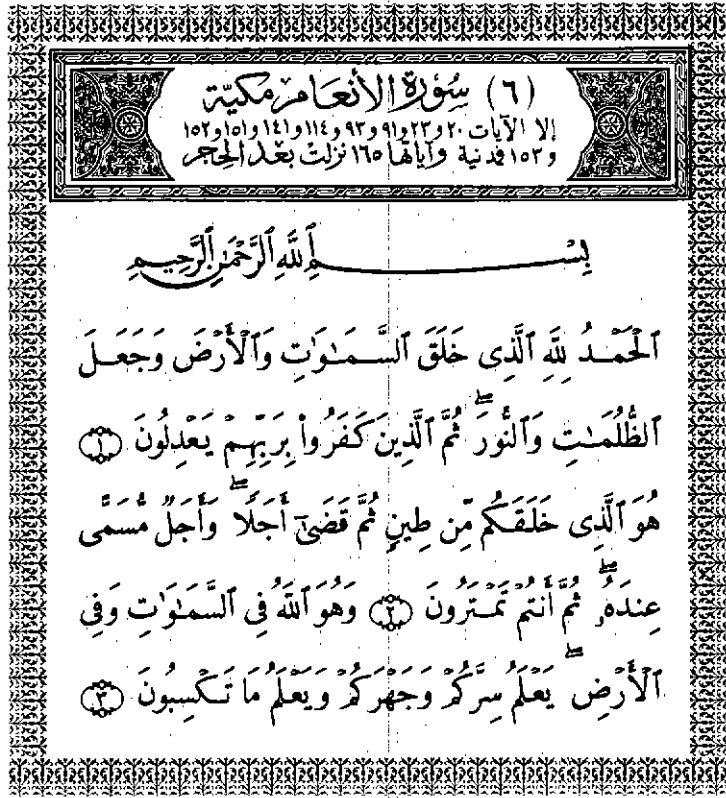 (٦) سُورَةُ الأنعَامِ مكيّة
إلا الآيات ٢٠ و٢٣ و٩١ و٩٣ و١١٤ و١٤١ و١٥١ و١٥٢
و ١٥٣ فمدنية وآياتها ١٦٥ نزلت بعد الحجر
بِسْمِ ٱللَّهِ ٱلرَّحْمَٰنِ ٱلرَّحِيمِ
ٱلْحَمْدُ لِلَّهِ ٱلَّذِى خَلَقَ ٱلسَّمَٰوَٰتِ وَٱلْأَرْضَ وَجَعَلَ
ٱلظُّلُمَٰتِ وَٱلنُّورَ ۖ ثُمَّ ٱلَّذِينَ كَفَرُوا۟ بِرَبِّهِمْ يَعْدِلُونَ ١
هُوَ ٱلَّذِى خَلَقَكُم مِّن طِينٍ ثُمَّ قَضَىٰٓ أَجَلًا ۖ وَأَجَلٌ مُّسَمًّى
عِندَهُۥ ۖ ثُمَّ أَنتُمْ تَمْتَرُونَ ٢ وَهُوَ ٱللَّهُ فِى ٱلسَّمَٰوَٰتِ وَفِى
ٱلْأَرْضِ ۖ يَعْلَمُ سِرَّكُمْ وَجَهْرَكُمْ وَيَعْلَمُ مَا تَكْسِبُونَ ٣